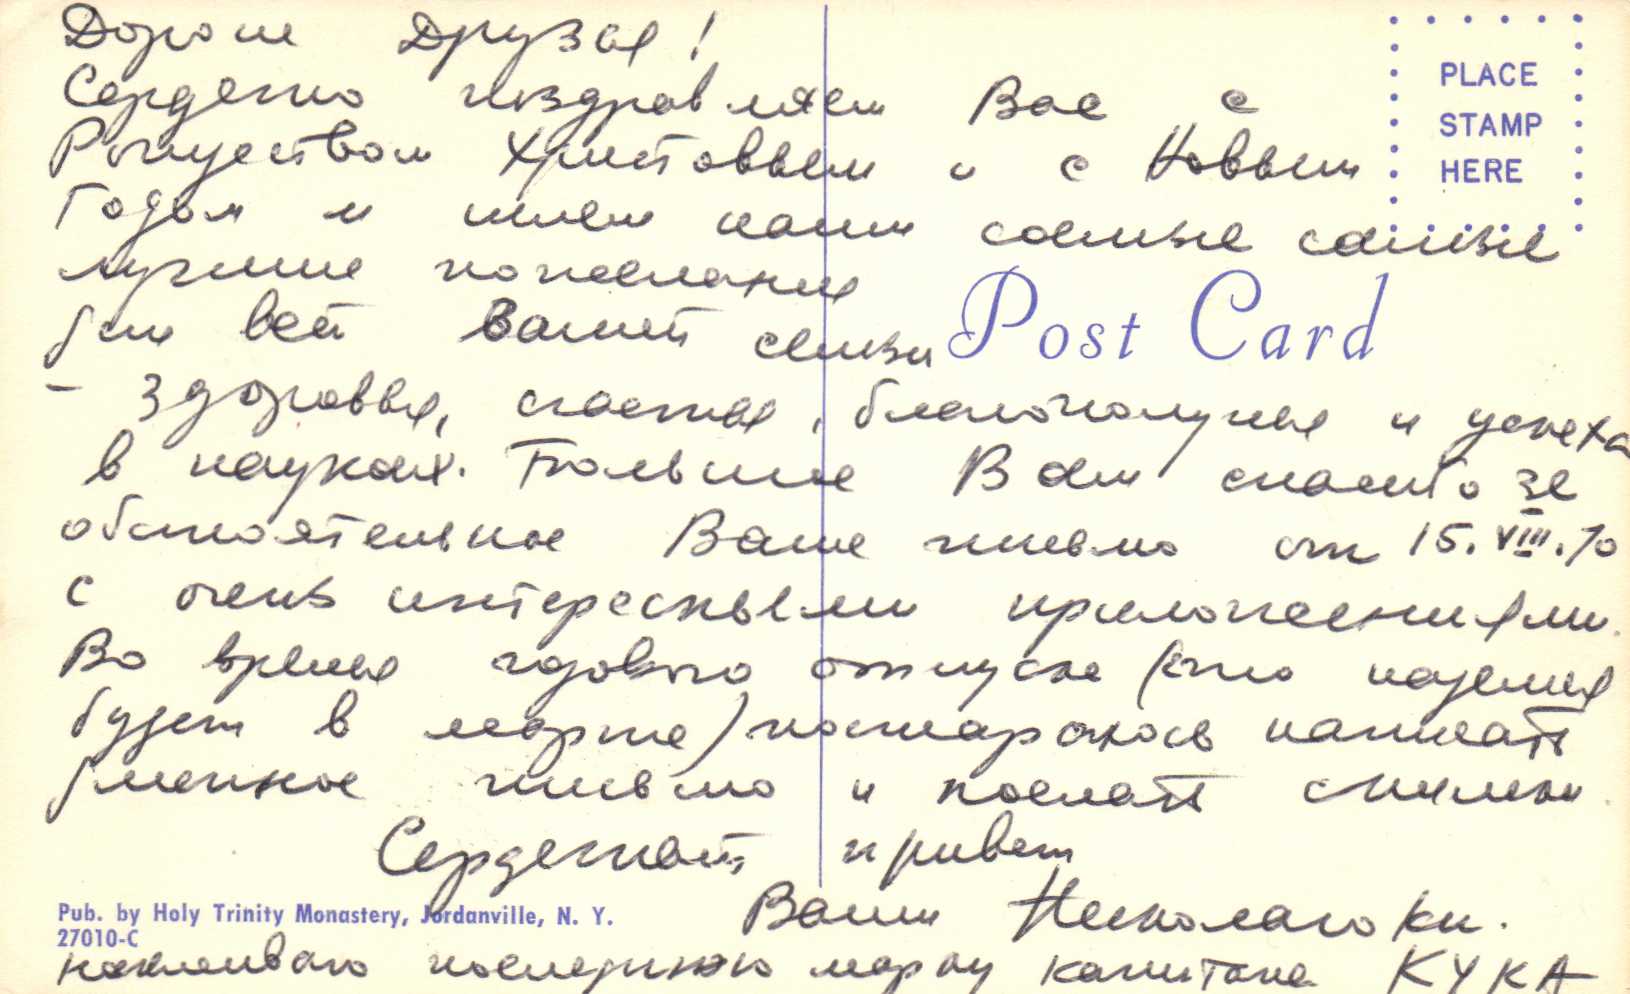 Дорогие Друзья!
Сердечно поздравляем Вас с
Рождеством Христовым и с Новым
Годом и шлем наши самые самые
лучшие пожелания
для всей Вашей семьи
- здоровья, счастья, благополучия и успеха
в науках. Большое Вам спасибо за
обстоятельное Ваше письмо от 15.VIII.70
с очень интересными приложениями.
Во время годового отпуска (что надеемся
будет в марте) постараюсь написать
длинное письмо и послать снимки.
Сердечный привет
Ваши
наклеиваю последнюю марку капитана КУКА
PLACE
STAMP
HERE
Post Card
Pub. by Holy Trinity Monastery, Jordanville, N. Y.
27010-C